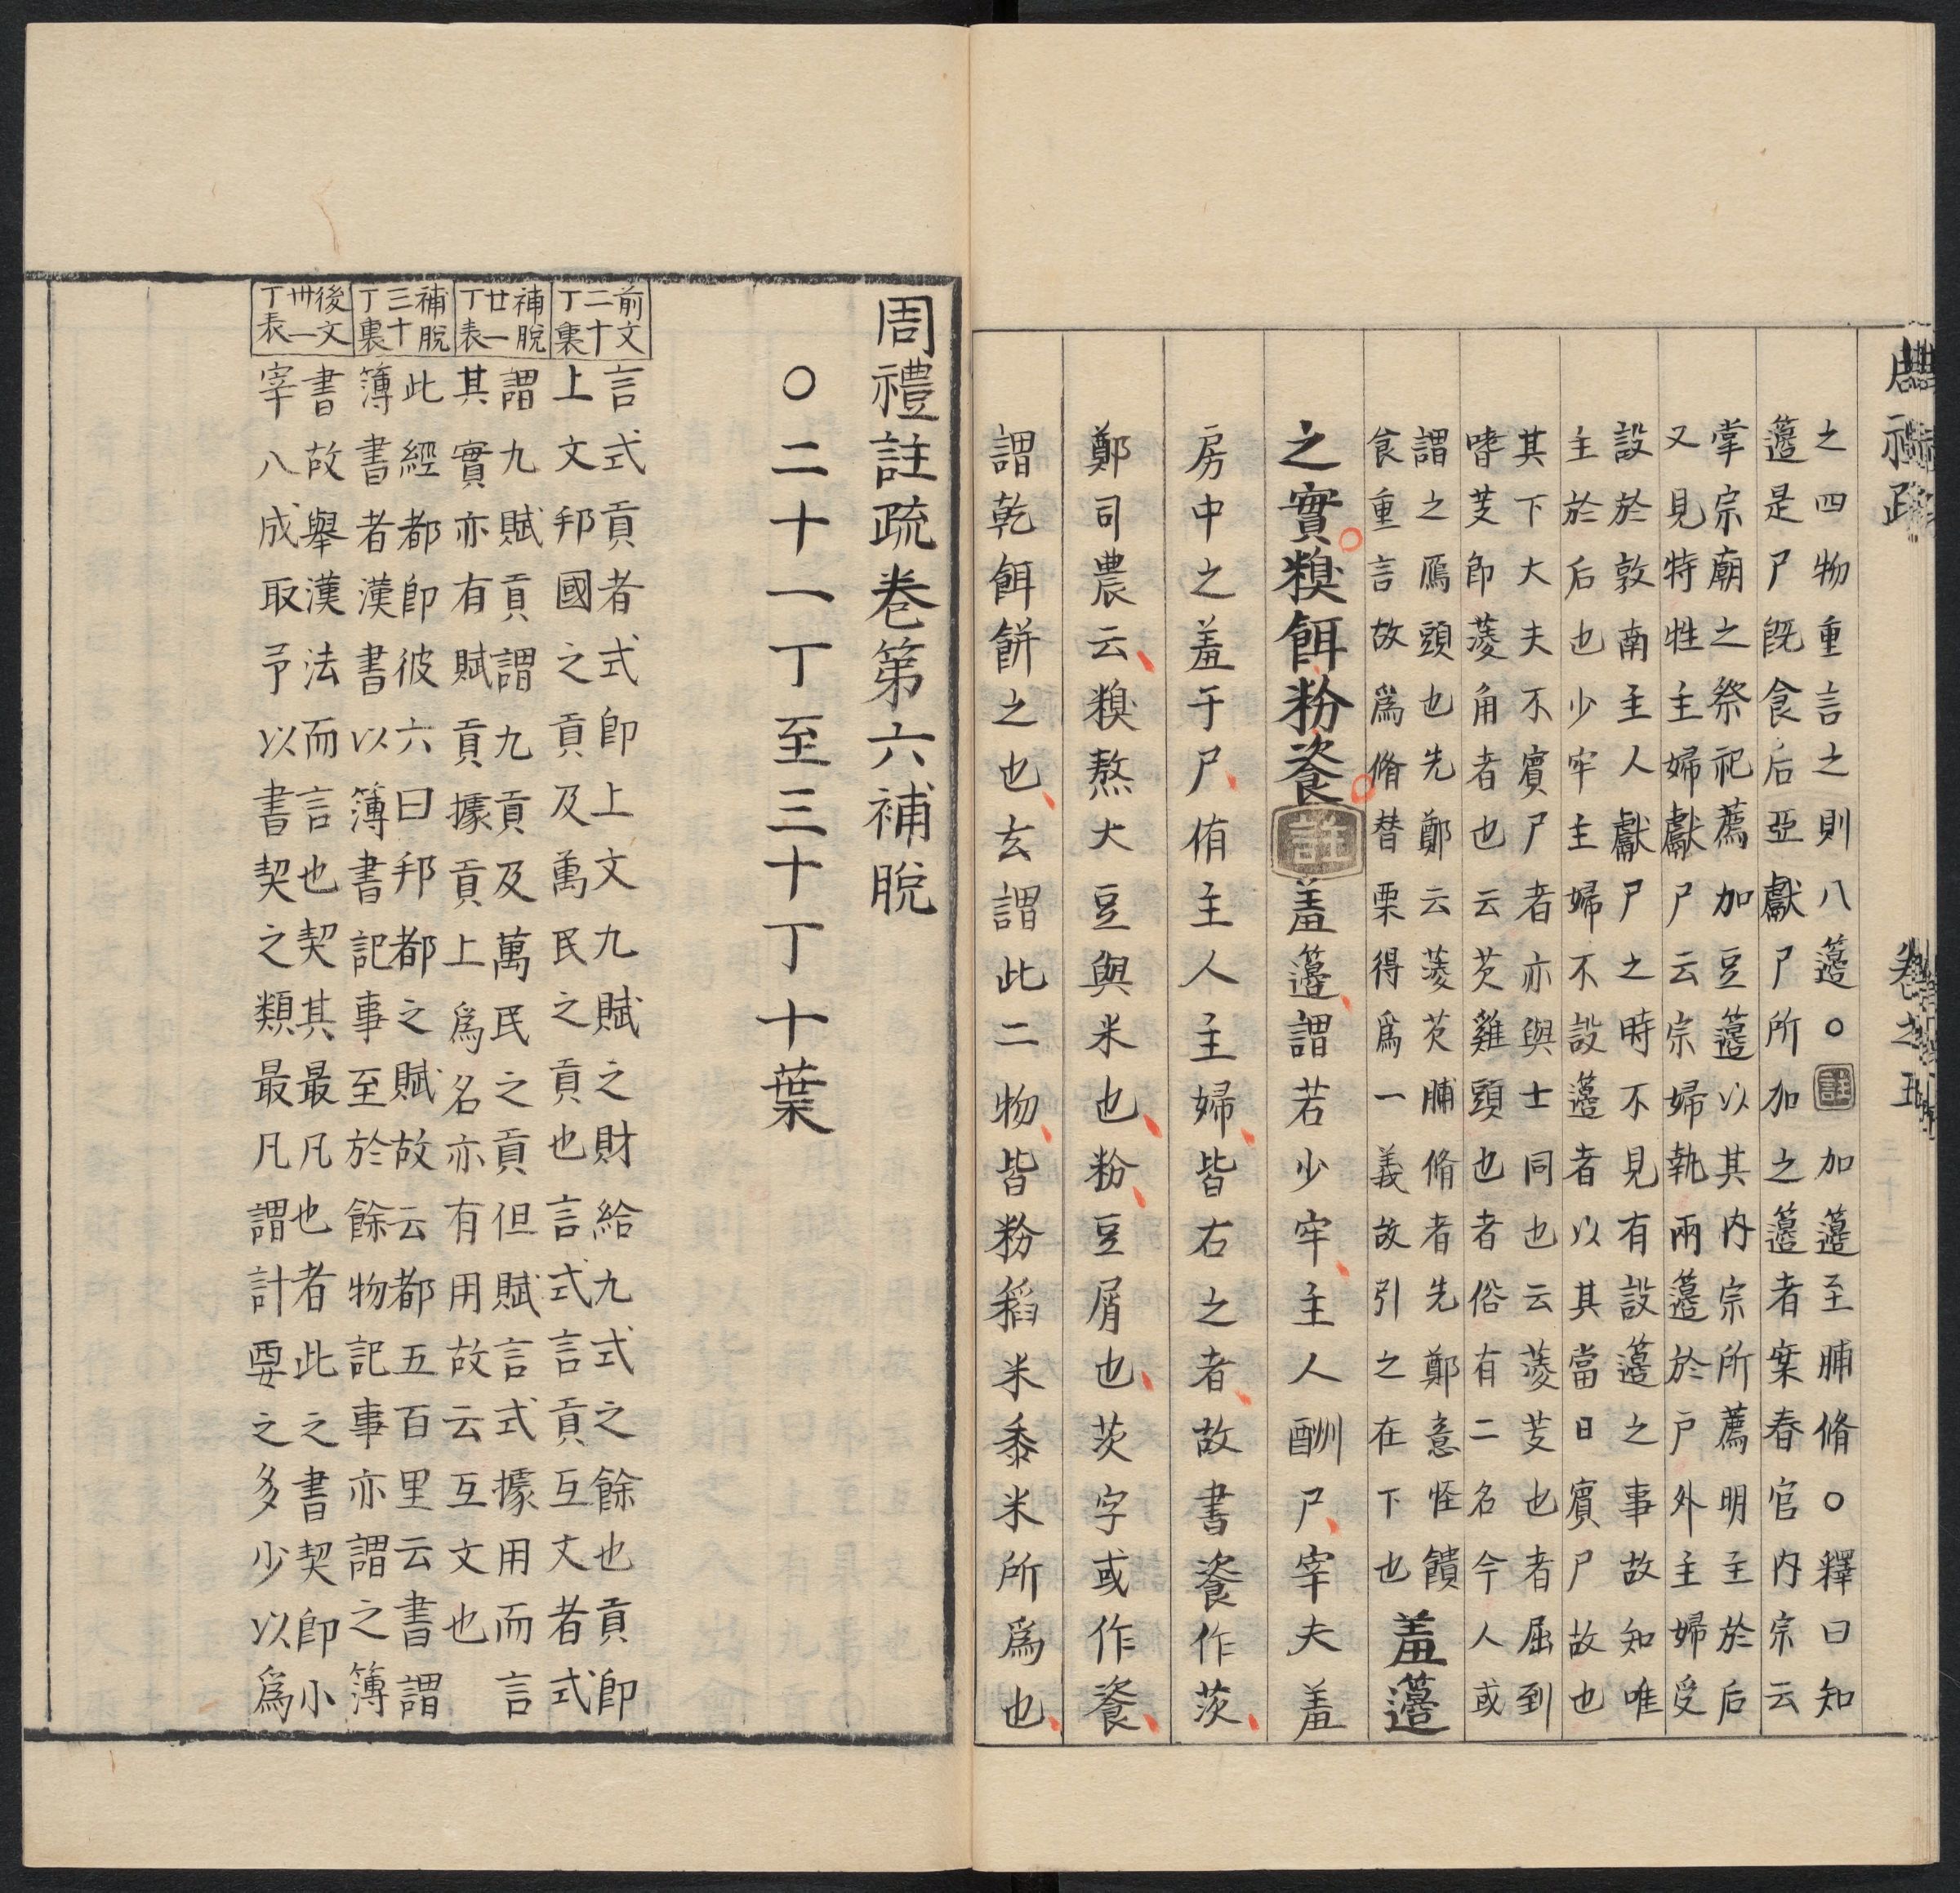 周禮疏 卷之五
之四物重言之則八籩○註加籩至脯脩○釋曰知
籩是尸旣食后亞獻尸所加之籩者案春官內宗云
掌宗廟之祭祀薦加豆籩以其內宗所薦明主於后
又見特牲主婦獻尸云宗婦執兩籩於戶外主婦受
設於敦南主人獻尸之時不見有設籩之事故知唯
主於后也少牢主婦不設籩者以其當日賓尸故也
其下大夫不賓尸者亦與士同也云蔆芰也者屈到
嗜芰卽蔆角者也云芡雞頭也者俗有二名今人或
謂之鴈頭也先鄭云蔆芡脯脩者先鄭意怪饋
食重言故爲脩替栗得爲一義故引之在下也
羞籩
之實糗餌粉餈註羞籩謂若少牢主人酬尸宰夫羞
房中之羞于尸侑主人主婦皆右之者故書餈作茨
鄭司農云糗熬大豆與米也粉豆屑也茨字或作餈
謂乾餌餅之也玄謂此二物皆粉稻米黍米所爲也
周禮註疏卷第六補脫
○二十一丁至三十丁十葉
前文二十丁裏
言式貢者式卽上文九賦之財給九式之餘也貢卽
上文邦國之貢及萬民之貢也言式言貢互文者式
補脫廿一丁表
謂九賦貢謂九貢及萬民之貢但賦言式據用而言
其實亦有賦貢據貢上爲名亦有用故云互文也
補脫三十丁裏
此經都卽彼六曰邦都之賦故云都五百里云書謂
簿書者漢書以簿書記事至於餘物記事亦謂之簿
後文卅一丁表
書故舉漢法而言也契其最凡也者此之書契卽小
宰八成取予以書契之類最凡謂計要之多少以爲